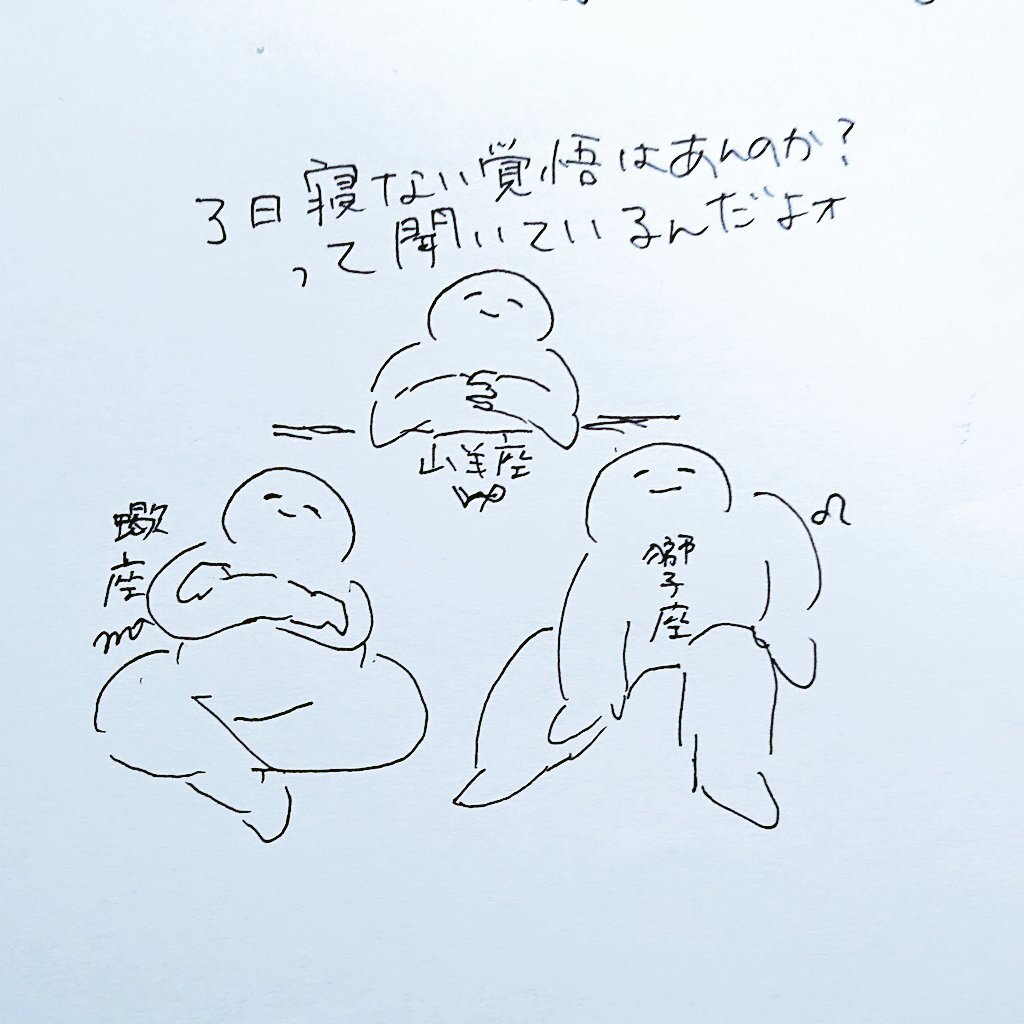 3日寝ない覚悟はあんのか?
って聞いているんだよォ
山羊座
♑
蠍座
♏
獅子座
♌